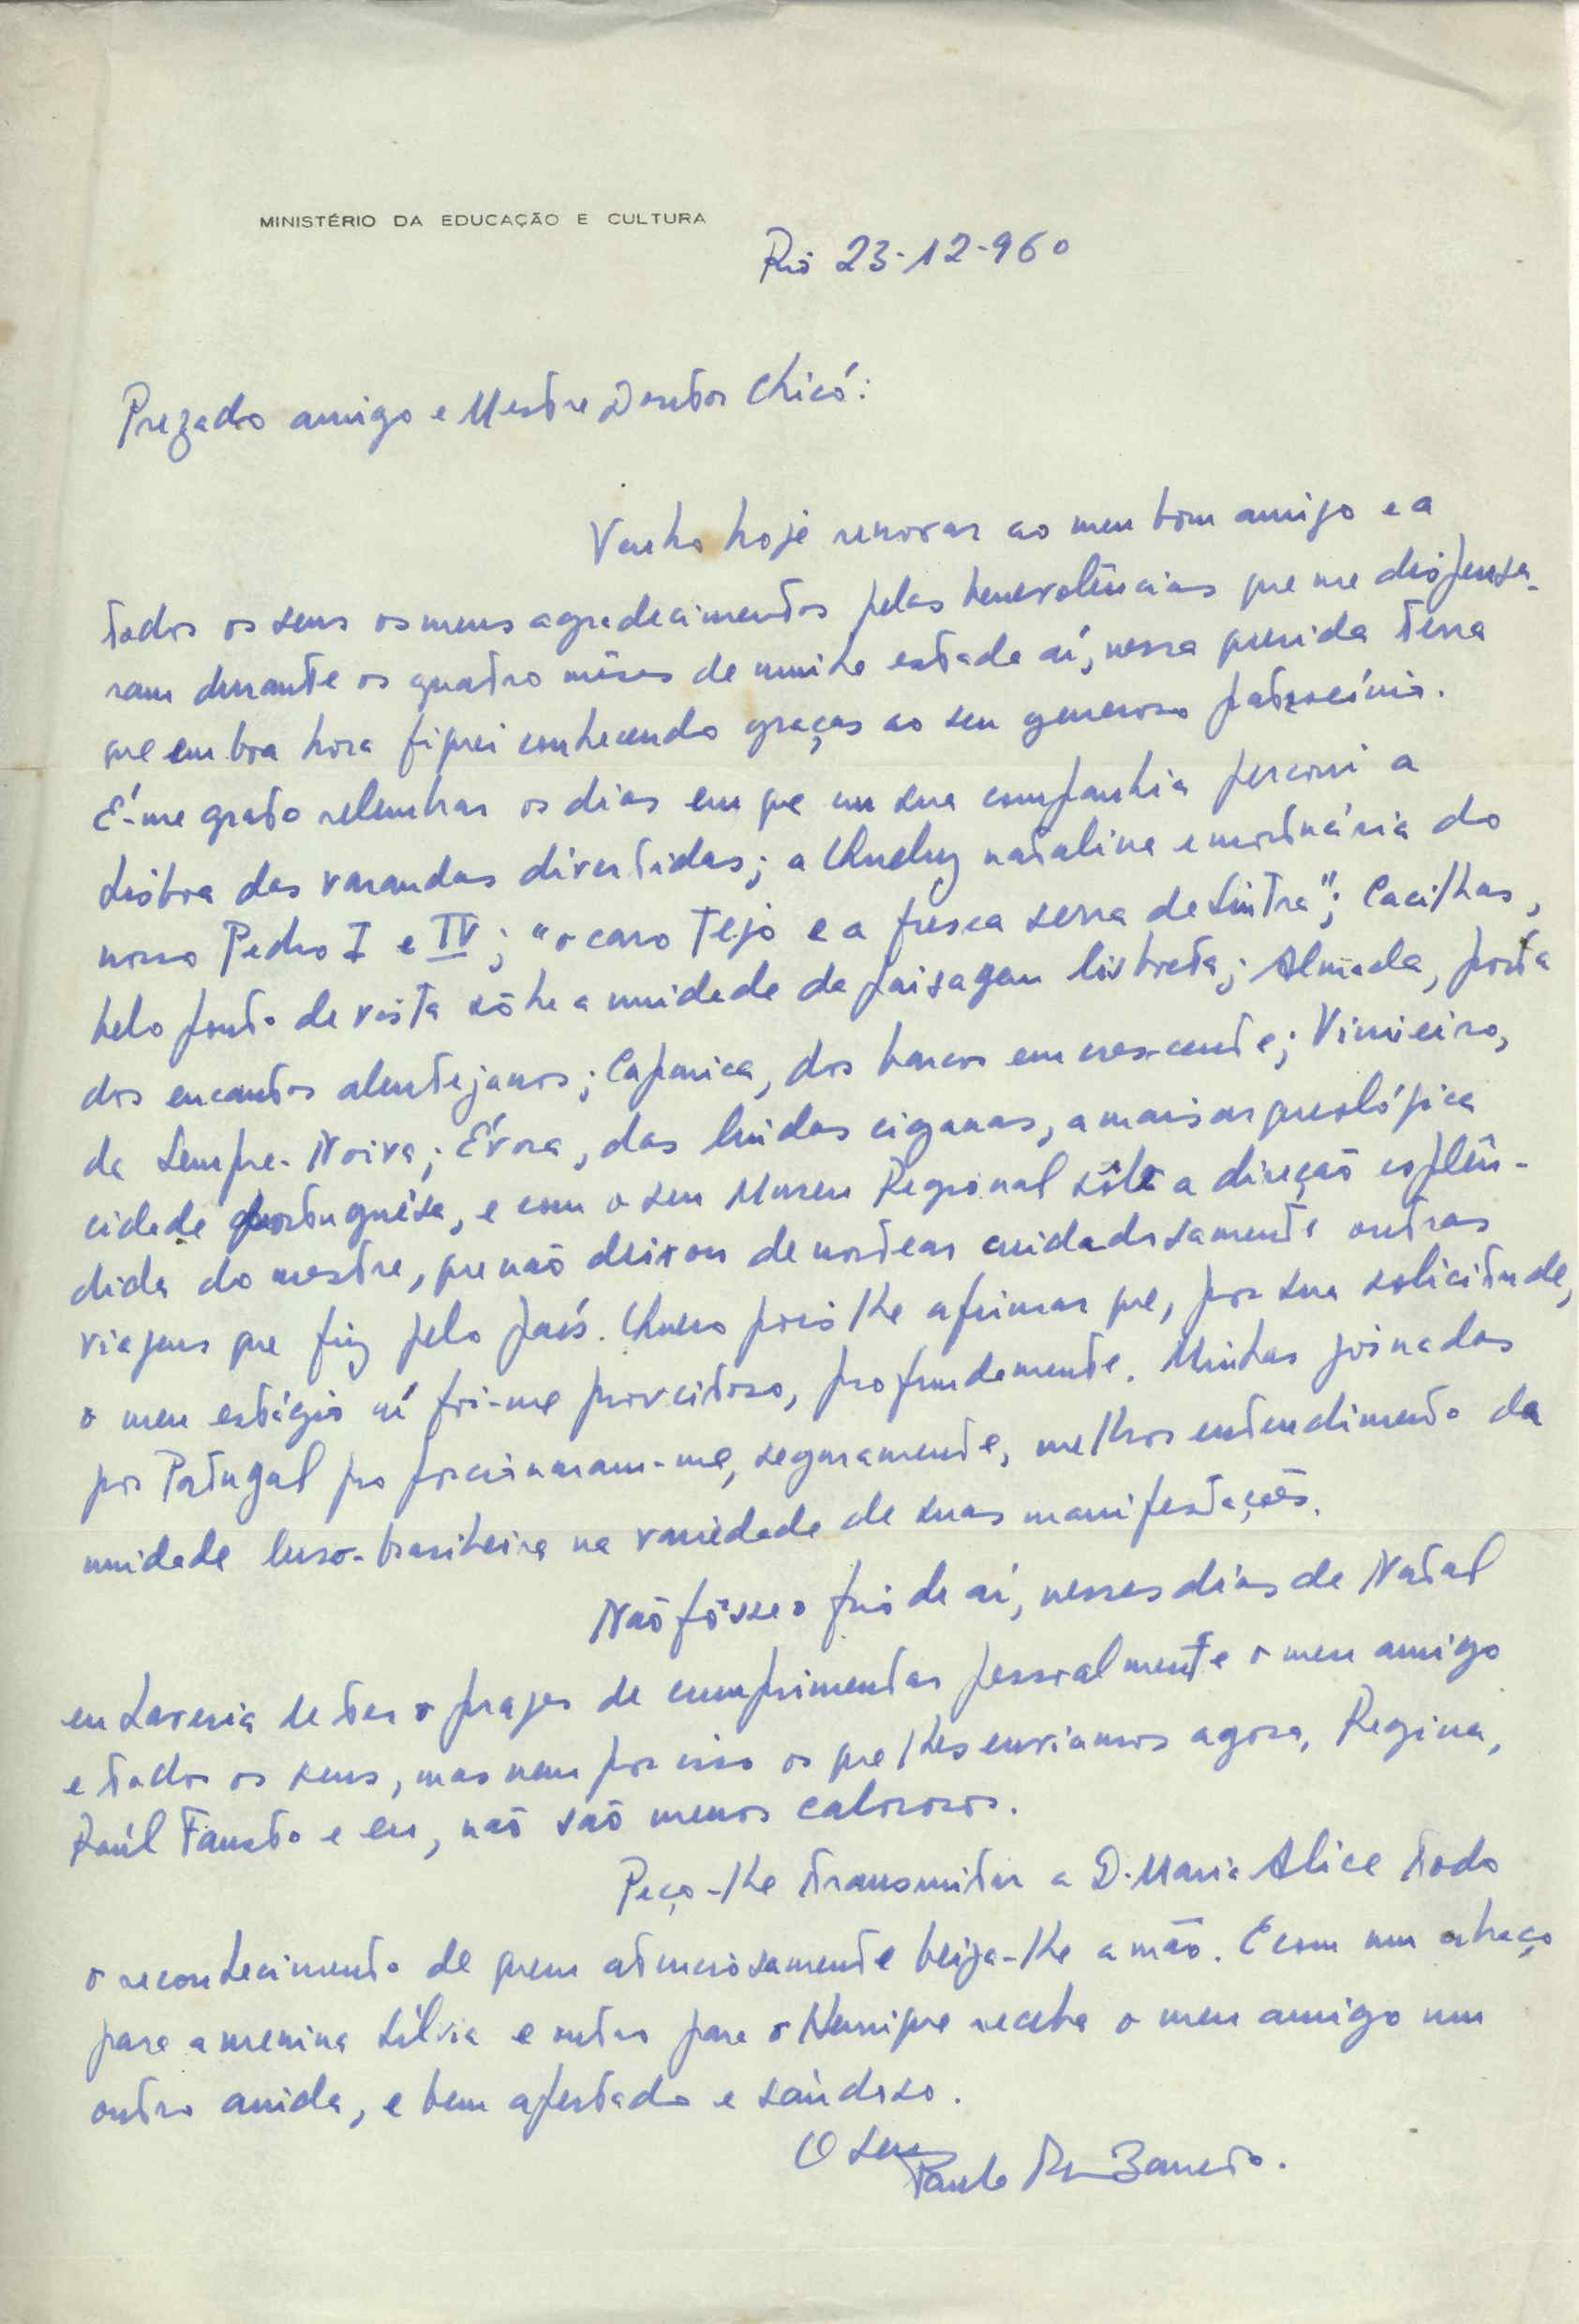 MINISTÉRIO DA EDUCAÇÃO E CULTURA
Rio 23-12-960
Prezado amigo e Mestre Doutor Chicó:
Venho hoje renovar ao meu bom amigo e a
todos os seus os meus agradecimentos pelas benevolências que me dispensa-
ram durante os quatro mêses de minha estada aí, nessa querida terra
que em boa hora fiquei conhecendo graças ao seu generoso patrocínio.
É-me grato relembrar os dias em que em sua companhia percorri a
Lisboa das varandas divertidas; a Queluz natalina e mortuária do
nosso Pedro I e IV; "o caro Tejo e a fresca serra de Sintra"; Cacilhas,
belo ponto de vista sôbre a unidade da paisagem lisboeta; Almada, porta
dos encantos alentejanos; Caparica, dos barcos em crescente; Vimieiro,
da Sempre-Noiva; Évora, das lindas ciganas, a mais arqueológica
cidade portuguêsa, e com o seu Museu Regional sob a direção esplên-
dida do mestre, que não deixou de nortear cuidadosamente outras
viagens que fiz pelo país. Quero pois lhe afirmar que, por sua solicitude,
o meu estágio aí foi-me proveitoso, profundamente. Minhas jornadas
por Portugal proporcionaram-me, seguramente, melhor entendimento da
unidade luso-brasileira na variedade de suas manifestações.
Não fôsse o frio de aí, nesses dias de Natal
eu haveria de ter o prazer de cumprimentar pessoalmente o meu amigo
e todos os seus, mas nem por isso os que lhes enviamos agora, Regina,
Raúl Fausto e eu, não são menos calorosos.
Peço-lhe transmitir a D. Maria Alice todo
o reconhecimento de quem atenciosamente beija-lhe a mão. E com um abraço
para a menina Sílvia e outro para o Henrique receba o meu amigo um
outro ainda, e bem apertado e saüdoso.
O seu
Paulo Barreto.